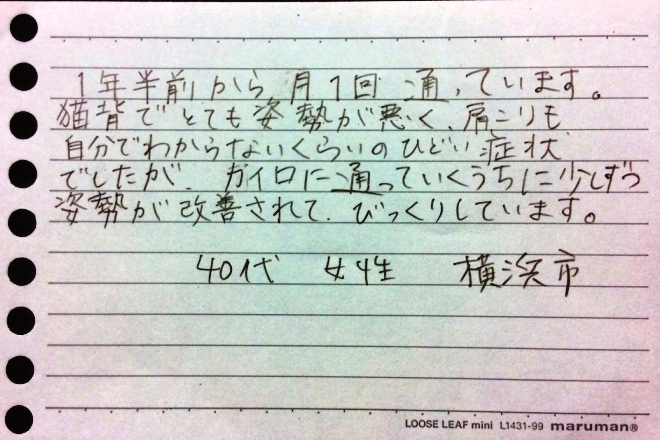 1年半前から月1回通っています。
猫背でとても姿勢が悪く、肩こりも
自分でわからないくらいのひどい症状
でしたが、カイロに通っていくうちに少しずつ
姿勢が改善されて、びっくりしています。
40代 女性 横浜市
LOOSE LEAF mini L1431-99 maruman®